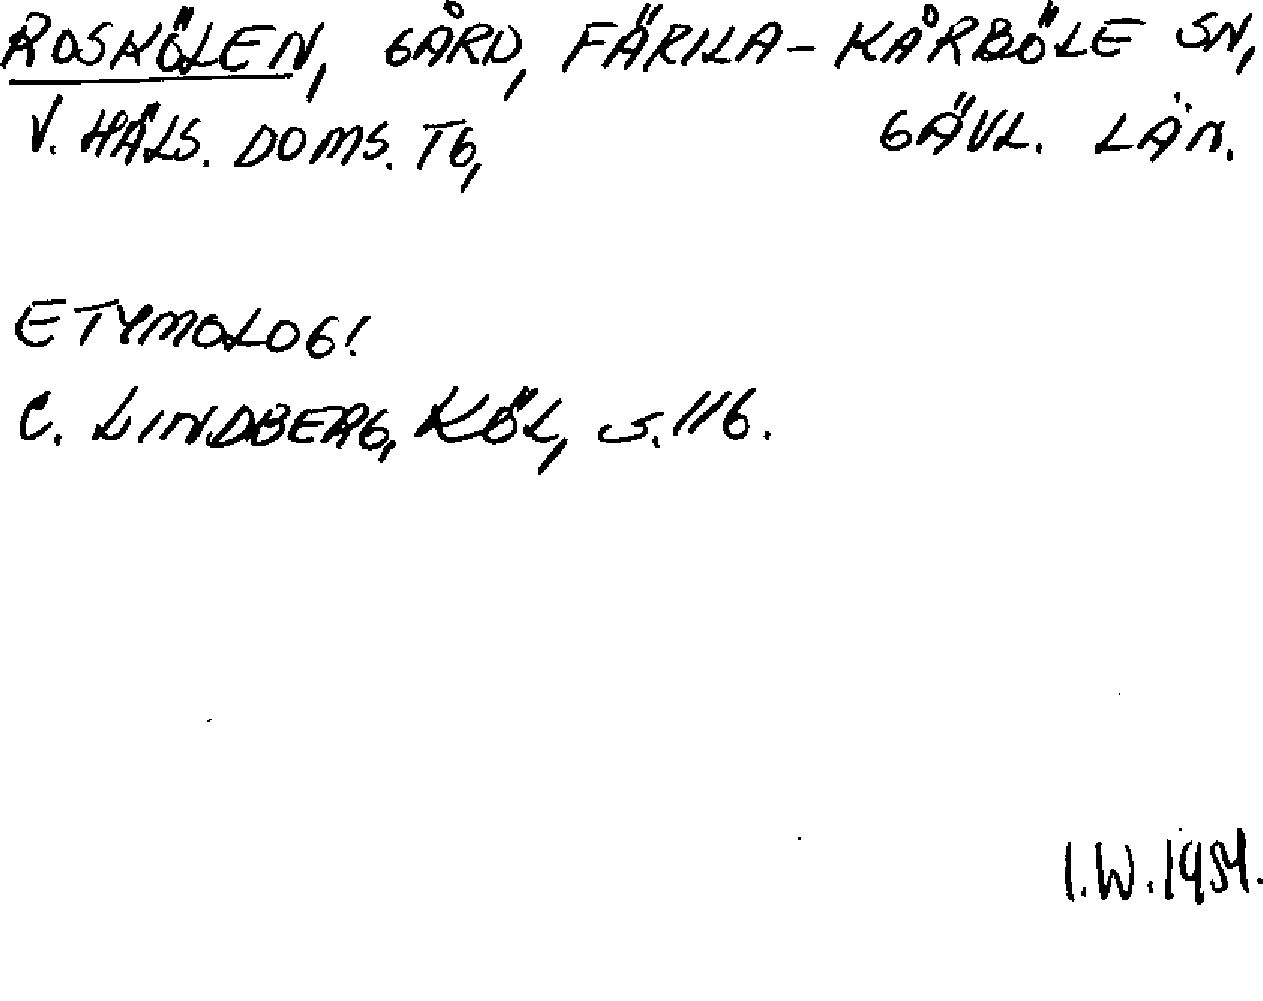 ROSKÖLEN, GÅRD, FÄRILA-KÅRBÖLE SN,
V. HÄLS. DOMS. TG, GÄVL. LÄN.
ETYMOLOG!
C. LINDBERG, KÖL, s. 116.
I.W. 1954.